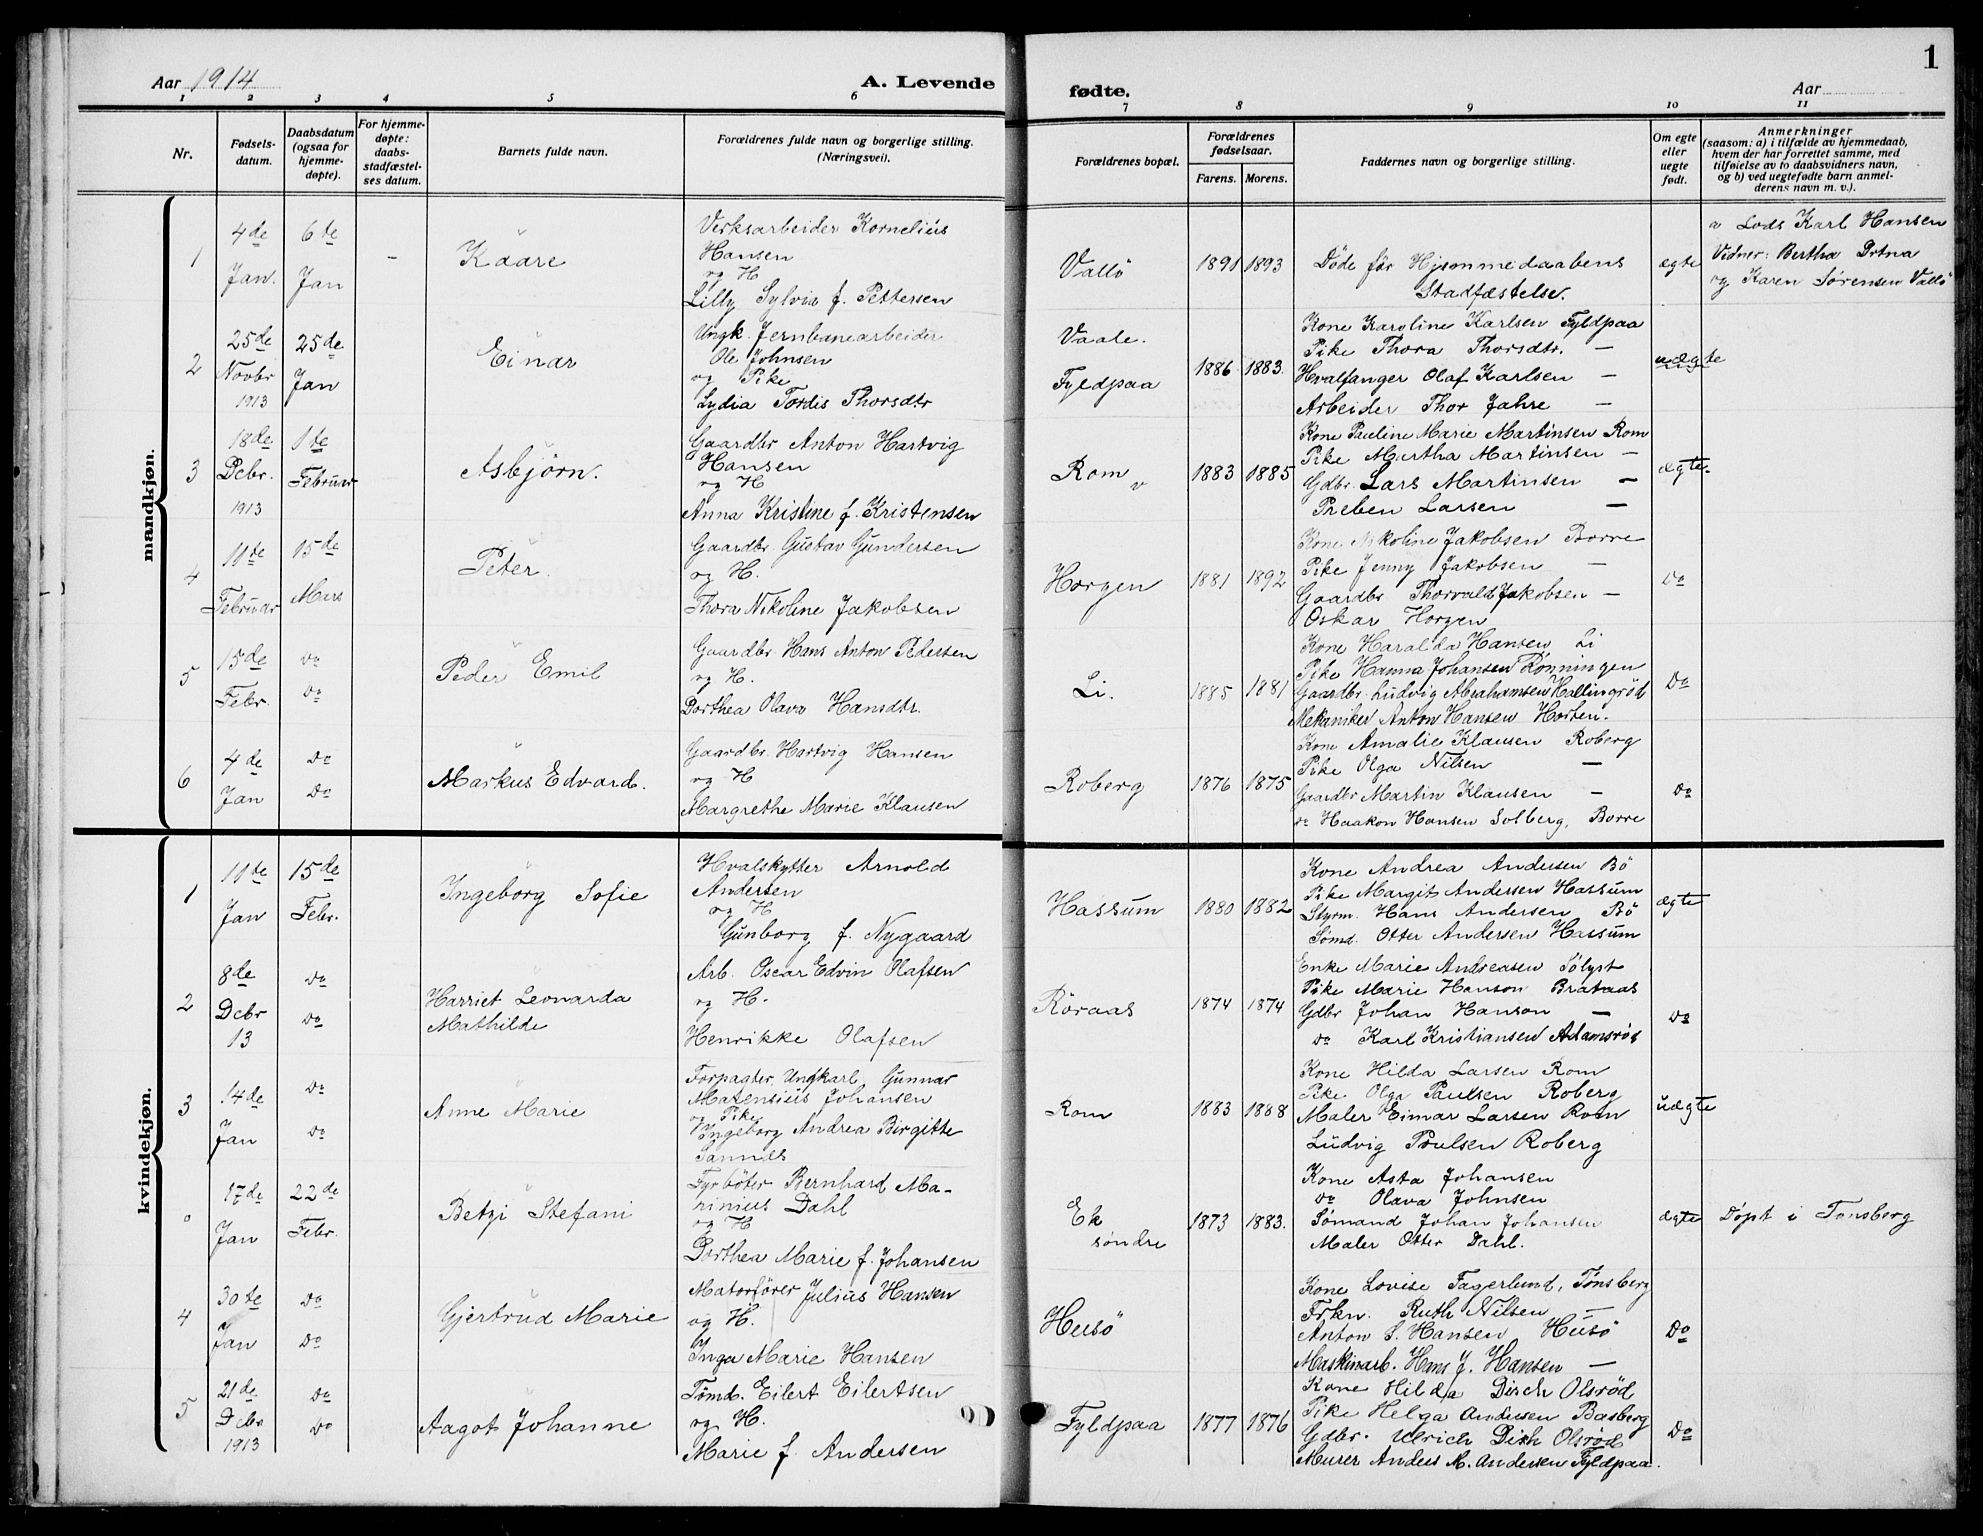 Aar 1914
A. Levende
fødte.
Aar
1
1 2 3 4 5 6 7 8 9 10 11
Nr.
Fødsels-
datum.
Daabsdatum
(ogsaa for
hjemme-
døpte).
For hjemme-
døpte:
daabs-
stadfæstel-
ses datum.
Barnets fulde navn.
Forældrenes fulde navn og borgerlige stilling.
(Næringsvei).
Forældrenes bopæl.
Forældrenes
fødselsaar.
Farens. Morens.
Faddernes navn og borgerlige stilling.
Om egte
eller
uegte
født.
Anmerkninger
(saasom: a) i tilfælde av hjemmedaab,
hvem der har forrettet samme, med
tilføielse av to daabsvidners navn,
og b) ved uegtefødte barn anmel-
derens navn m. v.).
mandkjøn.
1
4de
Jan.
6te
Jan
-
Kaare
Verksarbeider Kornelius
Hansen
og H
Lilly Sylvia f. Pettersen
Vallö
1891 1893
Döde før Hjemmedaabens
Stadfæstelse.
ægte
a Lods Karl Hansen
Vidner: Bertha
og Karen Sørensen Vallö
2
25de
Novbr
1913
25de
Jan
Einar
Ungk. Jernbanearbeider
Ole Johnsen
og Pike
Lydia Tordis Thorsdtr
Vaale.
Fyldpaa
1886 1883.
Kone Karoline Karlsen Fyldpaa
Pike Thora Thorsdtr. —
Hvalfanger Olaf Karlsen —
Arbeider Thor Jahre —
uægte
3
18de
Dcbr.
1913
1te
Februar
Asbjörn.
Gaardbr Anton Hartvig
Hansen
og H
Anna Kristine f. Kristensen
Rom v
1883 1885
Kone Pauline Marie Martinsen Rom
Pike Martha Martinsen —
Gdbr. Lars Martinsen —
Preben Larsen —
ægte.
4
11te
Februar
15de
Mars
Peter.
Gaardbr. Gustav Gundersen
og H.
Thora Nikoline Jakobsen
Horgen
1881 1892
Kone Nikoline Jakobsen Borre
Pike Jenny Jakobsen —
Gaardbr Thorvald Jakobsen —
Oskar Horgen
Do
5
15de
Febr.
Do
Do
Peder Emil
Gaardbr. Hans Anton Pedersen
og H.
Dorthea Olava Hansdtr.
Li.
1885 1881
Kone Haralda Hansen Li
Pike Hanna Johansen Rönningen
Gaardbr. Ludvig Abrahamsen Hallingröd
Mekaniker Anton Hansen Horten.
Do
6
4de
Jan
Do
Do
Markus Edvard.
Gaardbr. Hartvig Hansen
og H
Margrethe Marie Klausen
Roberg
1876 1875
Kone Amalie Klausen Roberg
Pike Olga Nilsen —
Gaardbr Martin Klausen —
Do Haakon Hansen Solberg, Borre
Do
kvindekjøn.
1
11te
Jan
15de
Febr.
Ingeborg Sofie
Hvalskytter Arnold
Andersen
og H
Gunborg f. Nygaard
Hassum
1880 1882
Kone Andrea Andersen Bö
Pike Margit Andersen Hassum
Styrm. Hans Andersen Bö
Sømd. Otter Andersen Hassum
ægte
2
8de
Dcbr
13
Do
Do
Harriet Leonarda
Mathilde
Arb. Oscar Edvin Olafsen
og H.
Henrikke Olafsen
Röraas
1874 1874
Enke Marie Andreasen Sölyst
Pike Marie Hanson Brataas
Gdbr Johan Hanson —
Do Karl Kristiansen Adamsröd
Do
3
14de
Jan
Do
Do
Anne Marie
Forpagter, Ungkarl, Gunnar
Matensius Johansen
og Pike
Ingeborg Andrea Birgitte
Sannes
Rom
1883 1888
Kone Hilda Larsen Rom
Pike Olga Paulsen Roberg
Maler Einar Larsen Rom
Ludvig Poulsen Roberg
uægte
°
17de
Jan
22de
Febr.
Betzi Stefani
Fyrböter Bernhard Ma-
rinius Dahl
og H
Dorthea Marie f. Johansen
Ek
söndre
1873 1883.
Kone Asta Johansen
Do Olava Johnsen
Sømand Johan Johansen
Maler Otter Dahl.
ægte
Döpt i Tønsberg
4
30te
Jan
Do
Do
Gjertrud Marie
Motorfører Julius Hansen
og H.
Inga Marie Hansen
Husö
Kone Lovise Fagerlund, Tønsberg
Frkn. Ruth Nilsen —
Anton S. Hansen Husö
Maskinarb. Hans J. Hansen —
Do
5
21de
Dcbr
1913
Do
Do
Aagot Johanne
Tømd. Eilert Eilertsen
og H.
Marie f. Andersen
Fyldpaa
1877 1876
Kone Hilda Dirch Olsröd
Pike Helga Andersen Basberg
Gdbr. Ulrich Dirch Olsröd
Murer Anders M. Andersen Fyldpaa.
Do